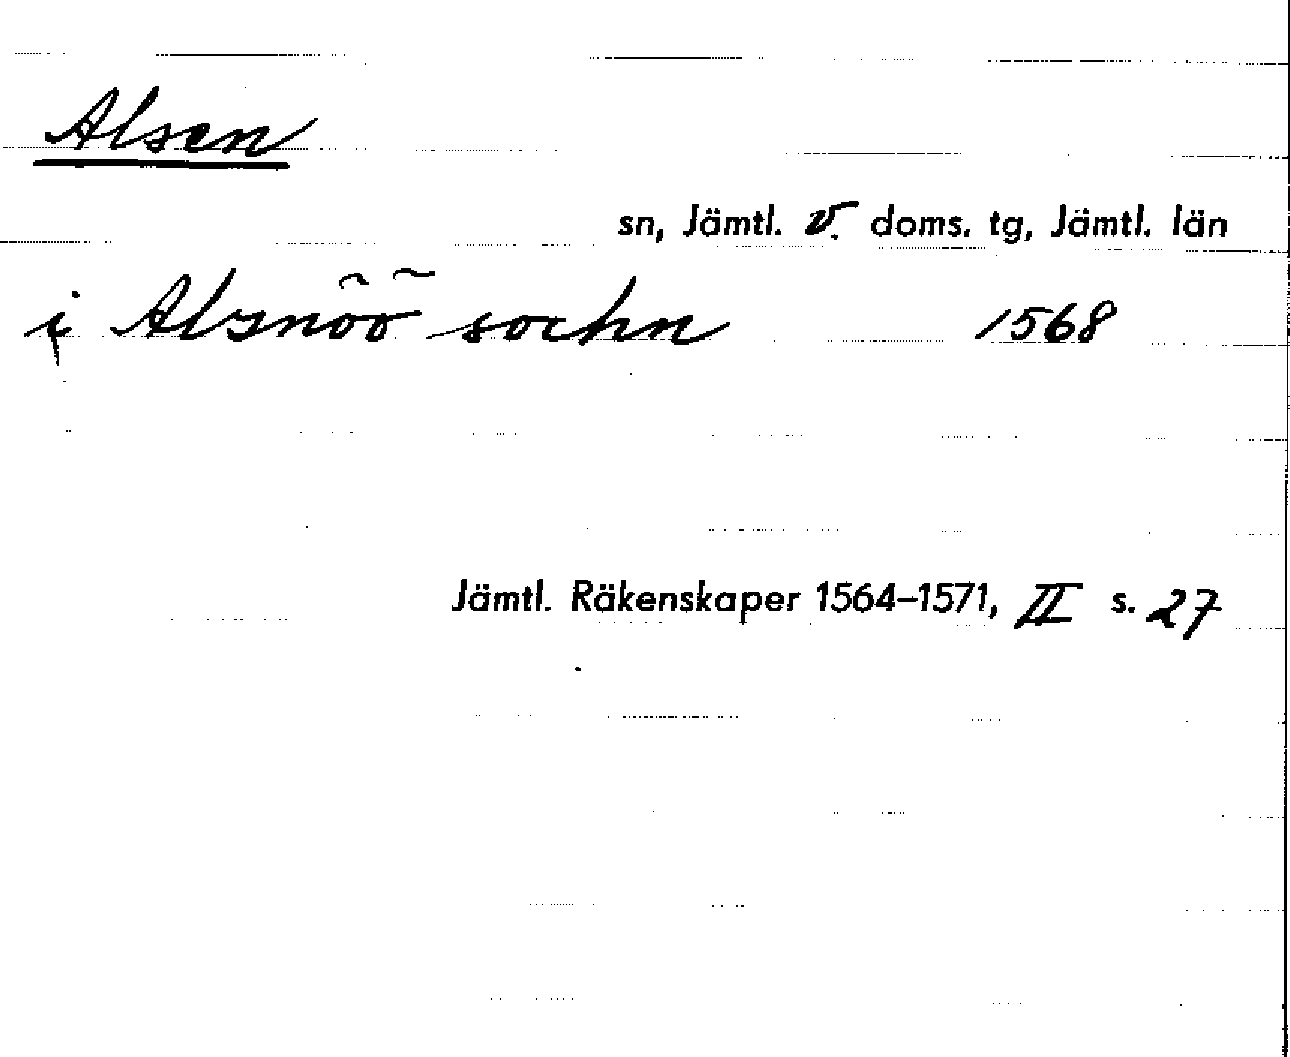 Alsen
sn, Jämtl. v. doms. tg, Jämtl. län
i Alsnõõ sochn 1568
Jämtl. Räkenskaper 1564–1571, II s. 27